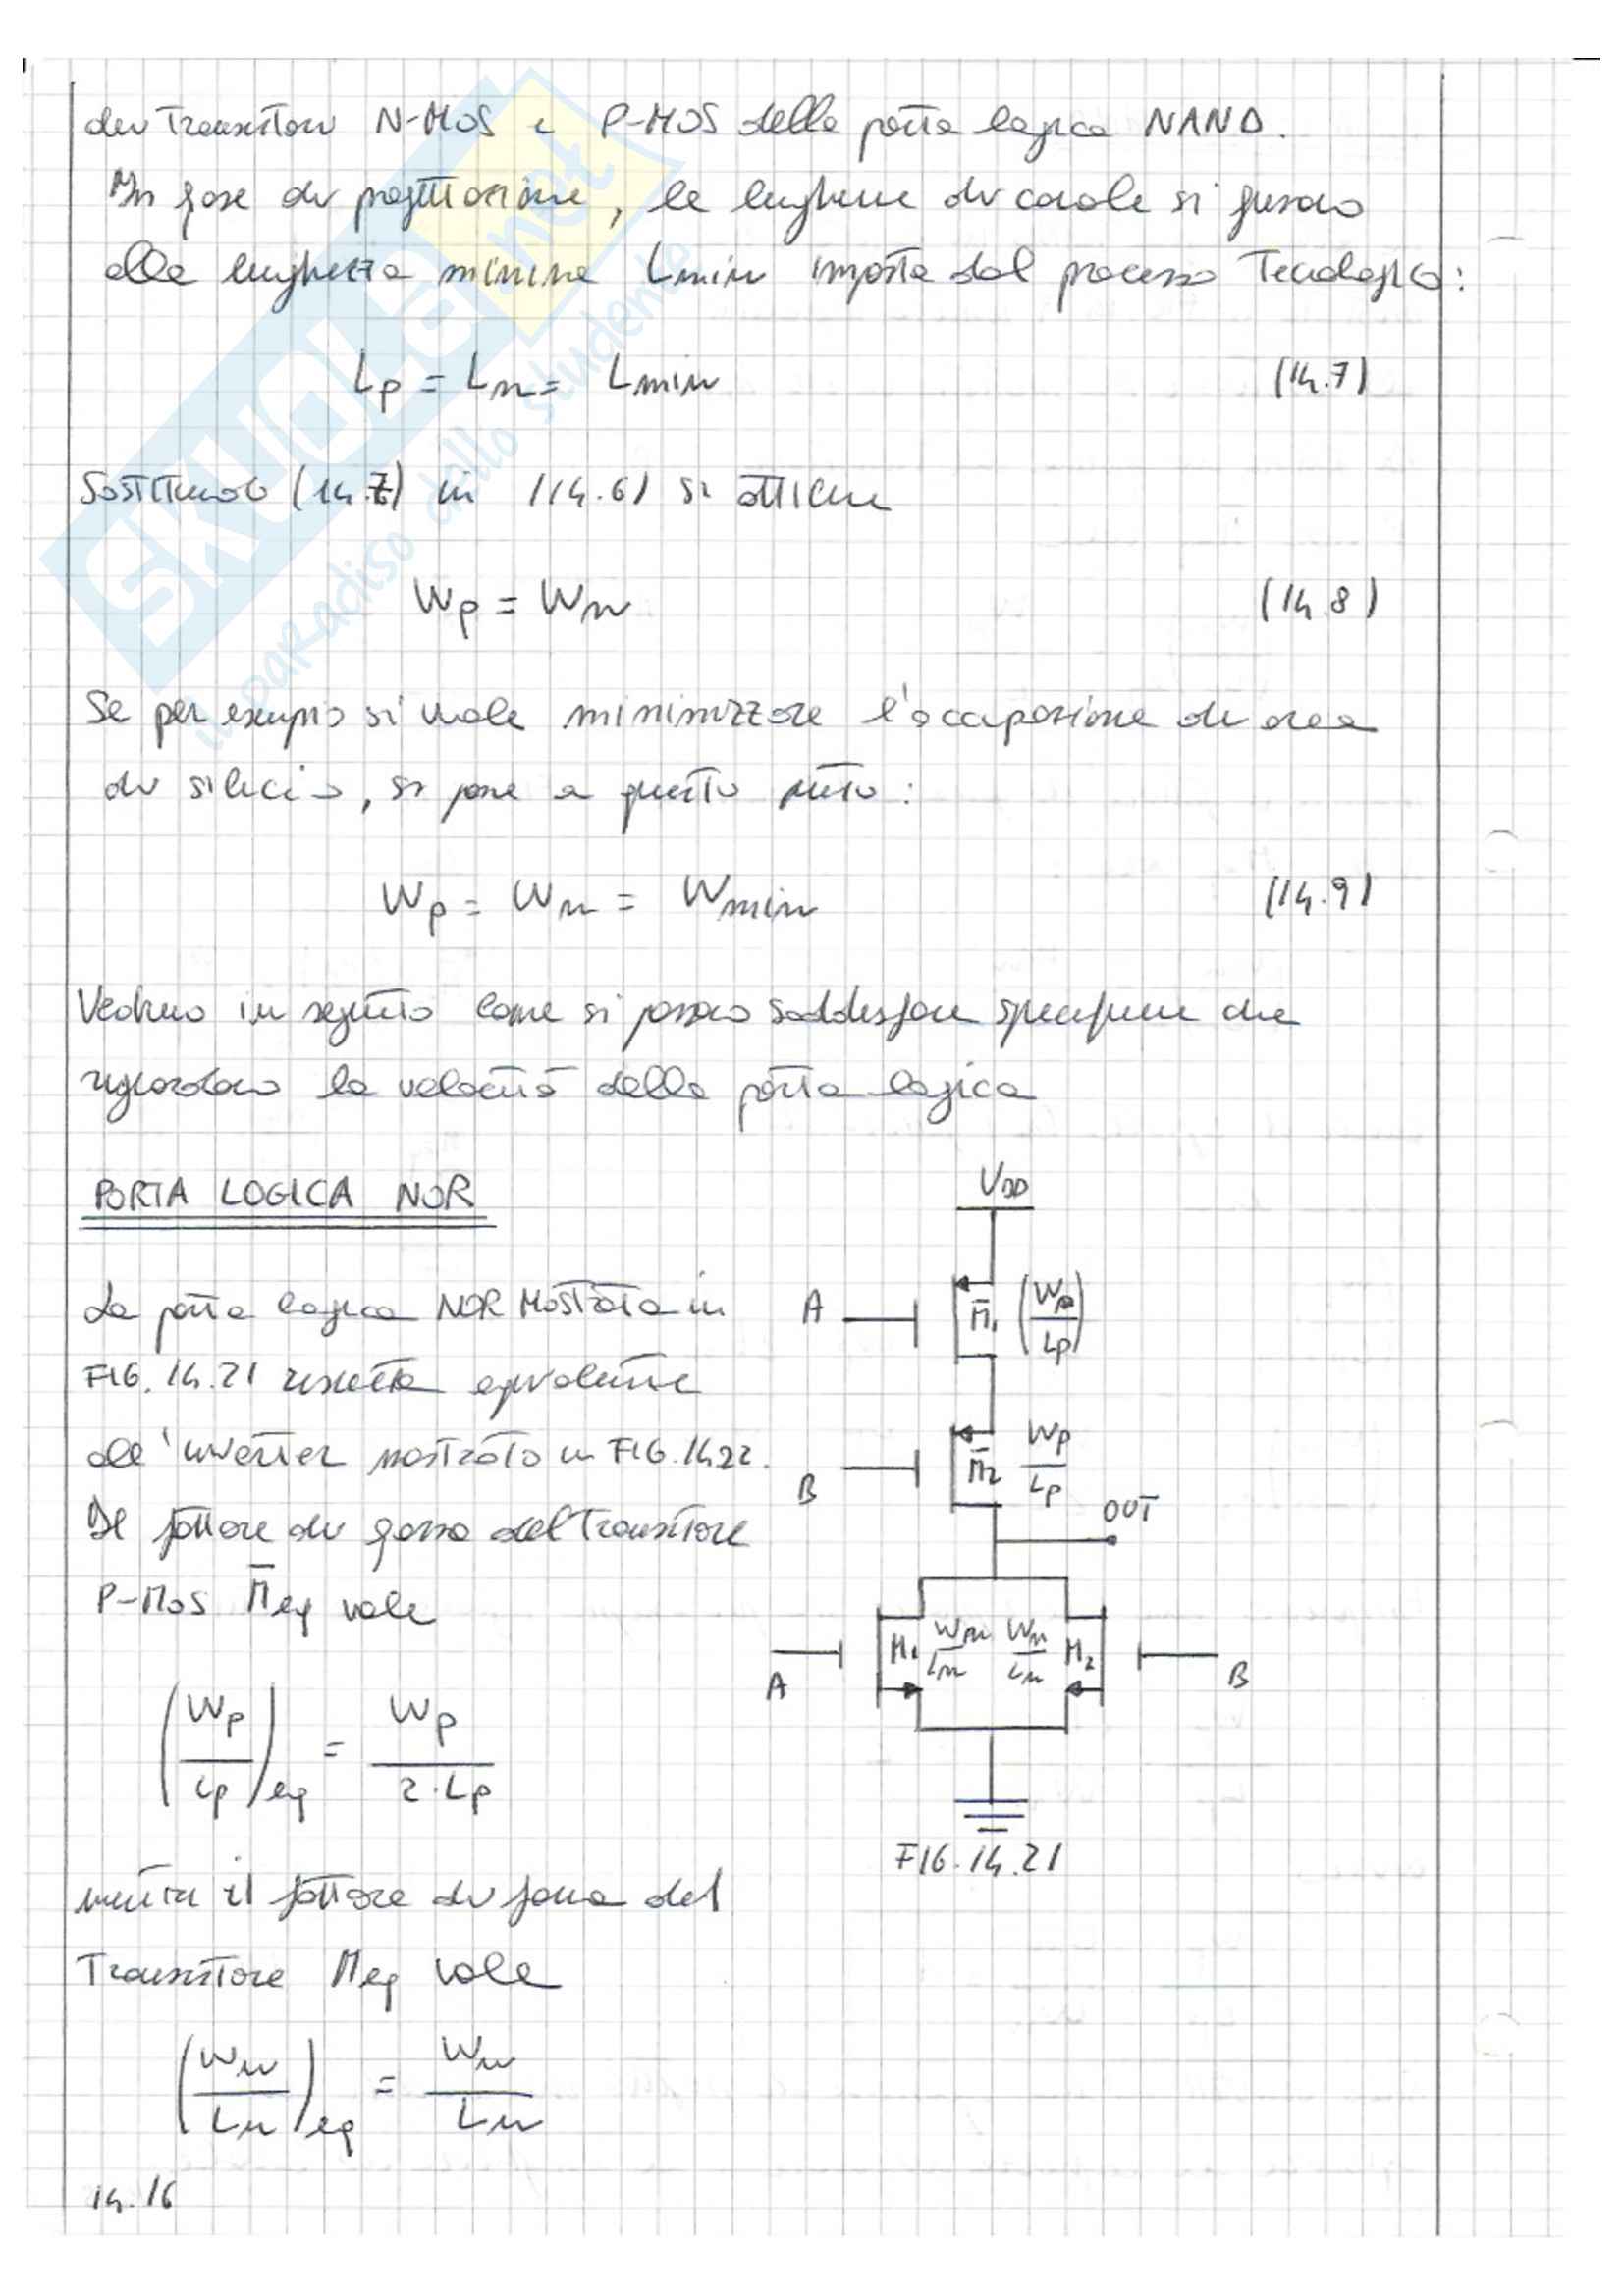 dei Transistori N-MOS e P-MOS della porta logica NAND.
In fase di progettazione, le lunghezze di canale si fissano
alla lunghezza minima Lmin imposta dal processo Tecnologico:
Lp = Ln = Lmin (14.7)
Sostituendo (14.7) in (14.6) si ottiene
Wp = Wn (14.8)
Se per esempio si vuole minimizzare l'occupazione di area
di silicio, si pone a questo punto:
Wp = Wn = Wmin (14.9)
Vedremo in seguito come si possano soddisfare specifiche che
riguardano la velocità della porta logica
PORTA LOGICA NOR
La porta logica NOR mostrata in
FIG. 14.21 risulta equivalente
all'inverter mostrato in FIG. 14.22.
Il fattore di forma del Transistore
P-MOS M̄eq vale
(Wp/Lp)eq = Wp/2·Lp
mentre il fattore di forma del
Transistore Meq vale
(Wn/Ln)eq = Wn/Ln
14.16
VDD
A M̄1 (Wp/Lp)
B M̄2 Wp/Lp
OUT
A M1 Wn/Ln Wn/Ln M2 B
FIG. 14.21
SKUOLA.net
il paradiso dello studente